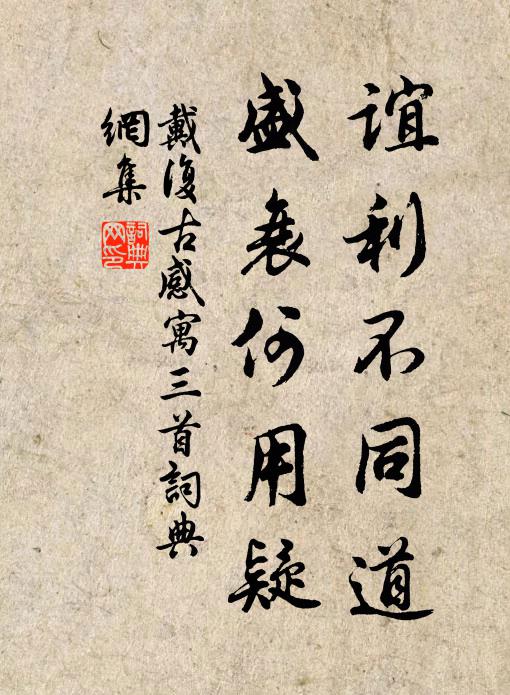 誼利不同道
盛衰何用疑
戴復古感寓三首詞典
網集
詞典
网印